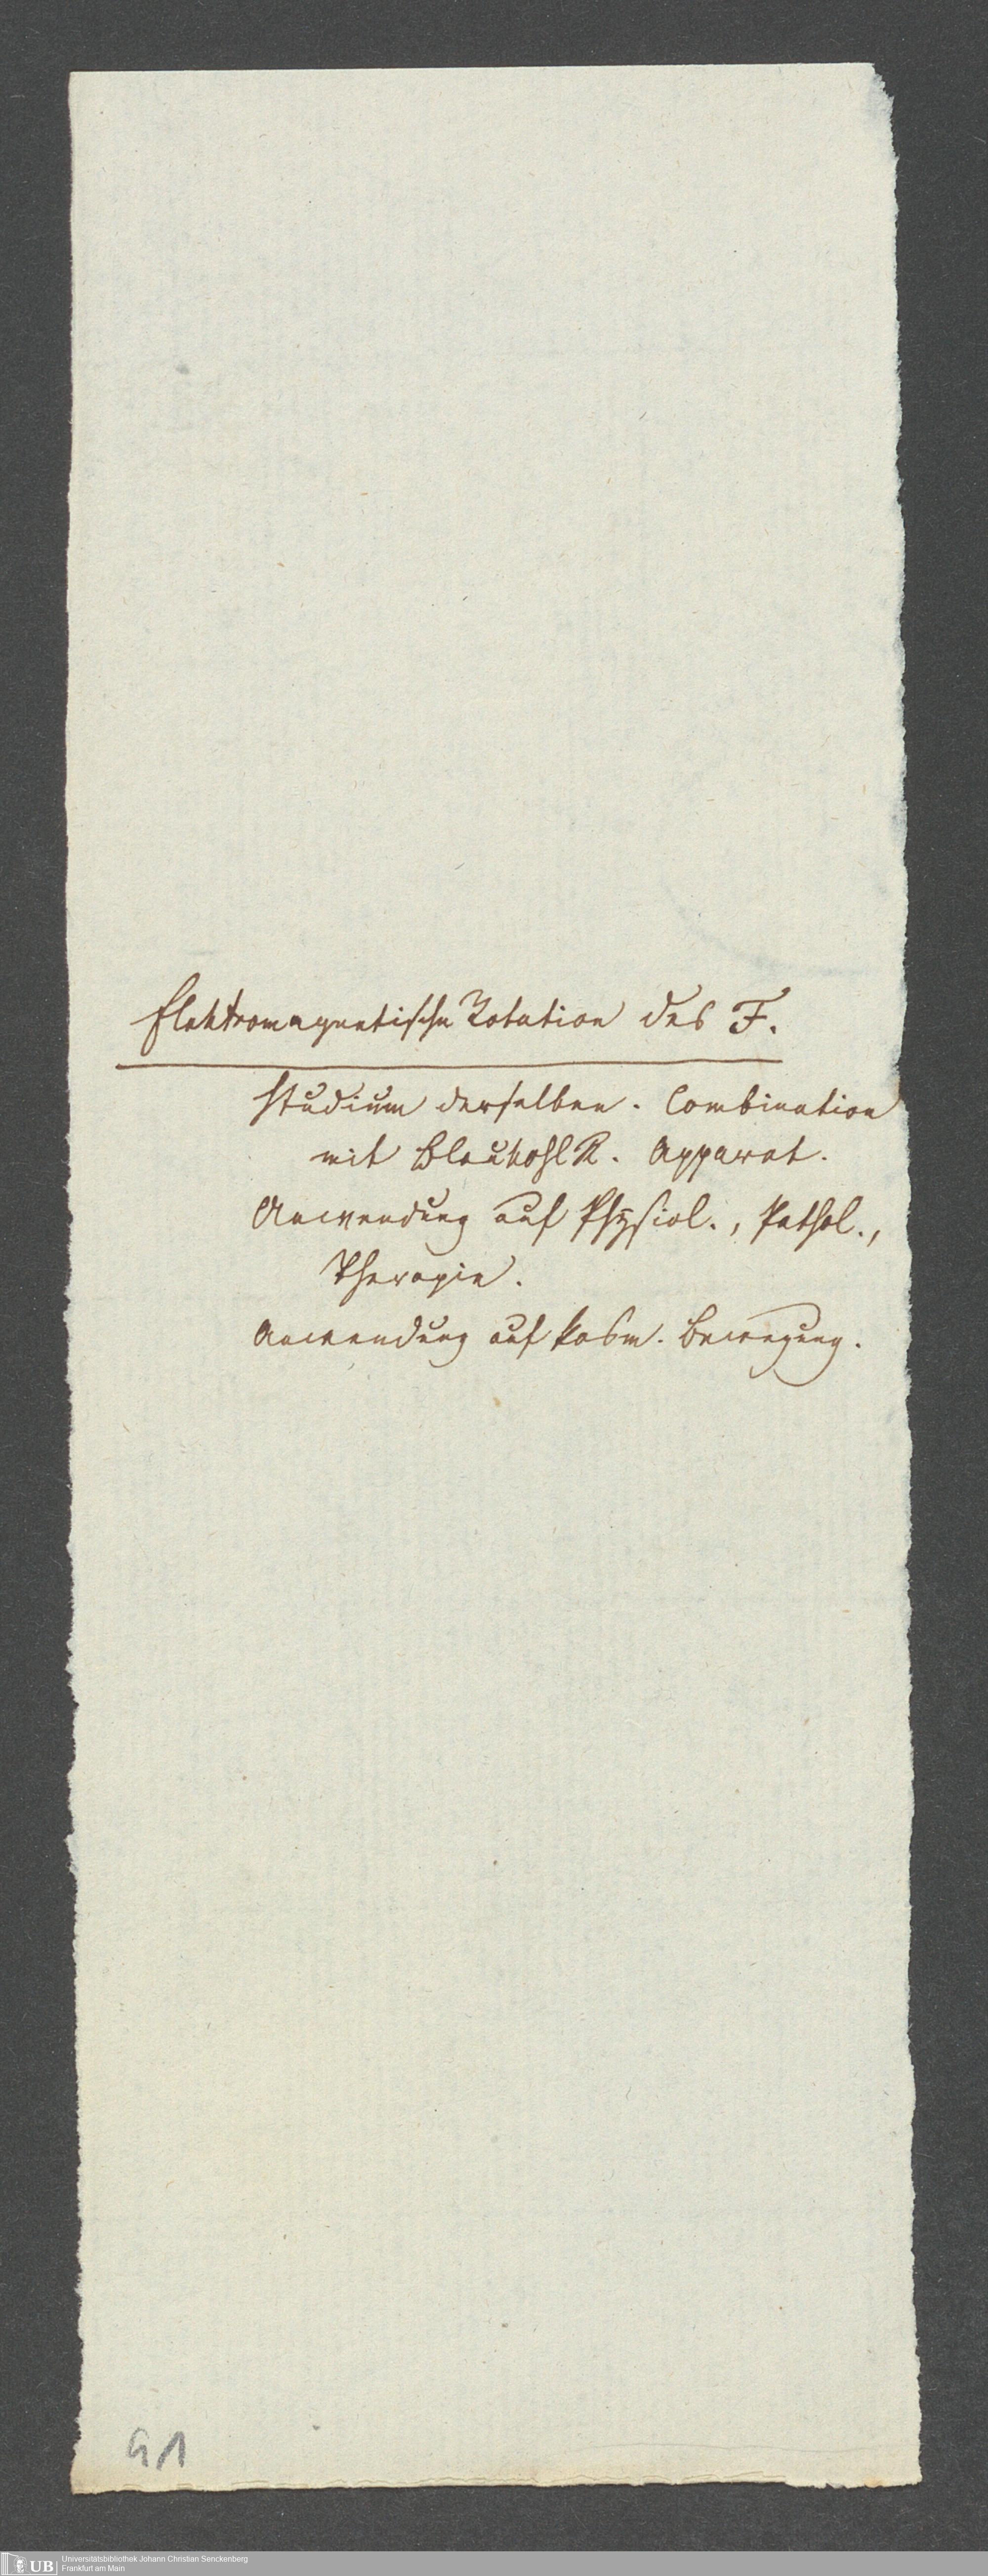 Elektromagnetische Rotation des F.
Studium derselben. Combination
mit Apparat.
Anwendung auf Physiol., Pathol.,
Therapie.
Anwendung auf kosm. Bewegung.
91
UB Universitätsbibliothek Johann Christian Senckenberg
Frankfurt am Main